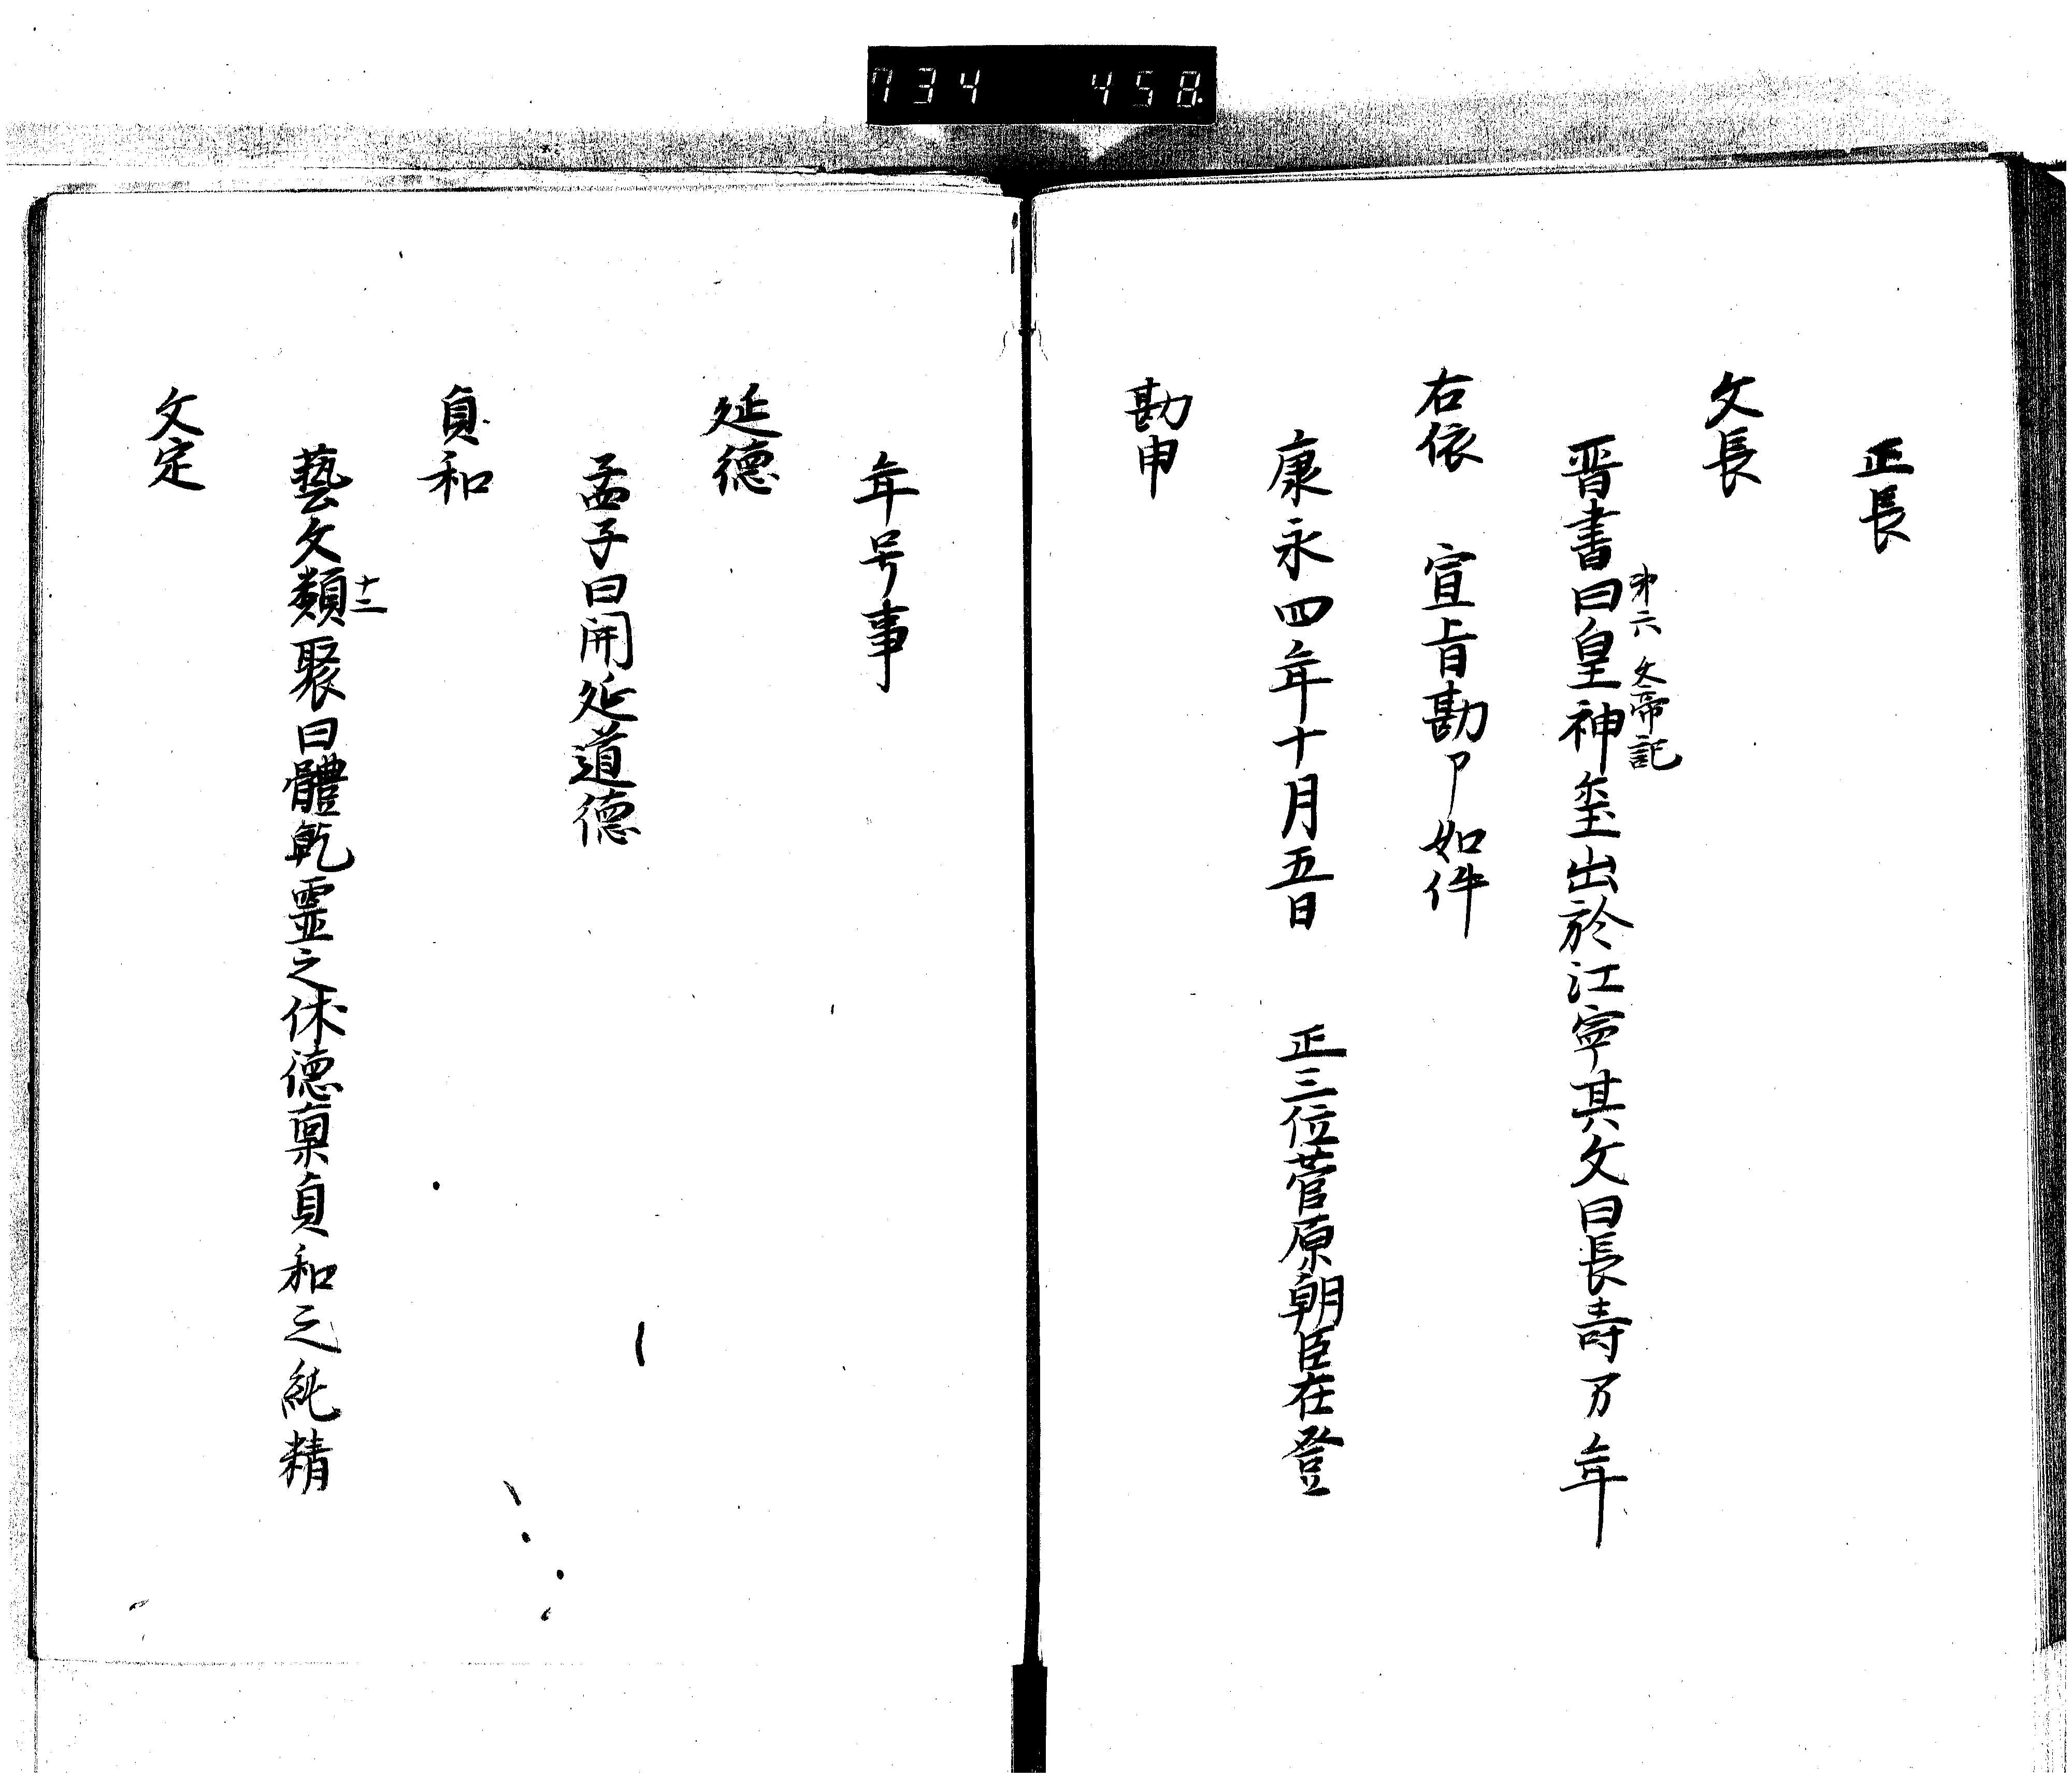 734 458
正長
文長
晋書曰皇神璽出於江寧其文曰長寿万年
第六 文帝記
右依 宣旨勘申如件
康永四年十月五日 正三位菅原朝臣在登
勘申
年号事
延德
孟子曰開延道德
貞和
藝文類聚曰體乾靈之休德稟貞和之純精
十三
文定